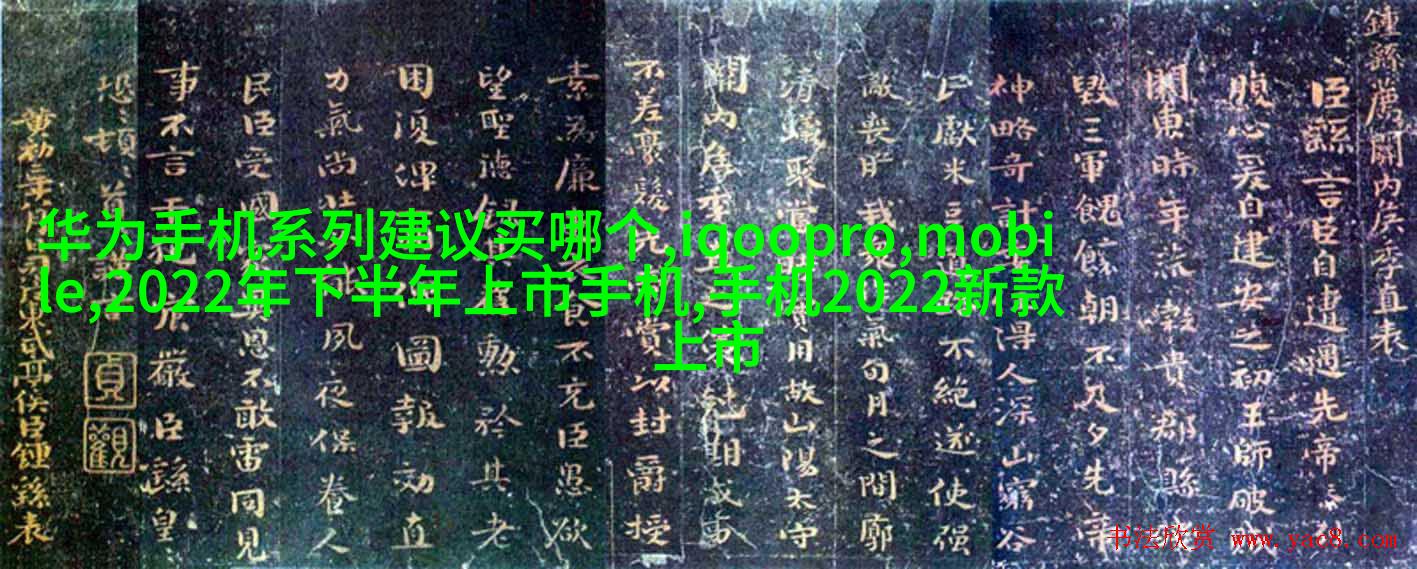 华为手机系列建议买哪个,iqoopro,mobi
le,2022年下半年上市手机,手机2022新款
上市
鍾繇薦關内侯季直表
臣繇言臣自遭遇先帝忝
腹心爰自建安之初王師破
關東時年荒穀貴郡縣
毀三軍餽饟朝不及夕先帝
神略奇計得人深山窮谷
民獻米豆道不絶遂使强
敵喪膽我氣旬月之間廓
清蟻聚當時實用故山陽太守
關内侯季直剋期成事
不差豪髮先賞以封爵授
素為廉食不充臣愚欲
望聖德錄勳矜其老
困復俾圖報効直
力氣尚壯夙夜保養人
民臣受國恩不敢雷同見
事不言干犯宸嚴臣繇皇
恐頓首
貞觀
黄初二年東武亭侯臣鍾繇表
书法欣赏 www.yac8.com